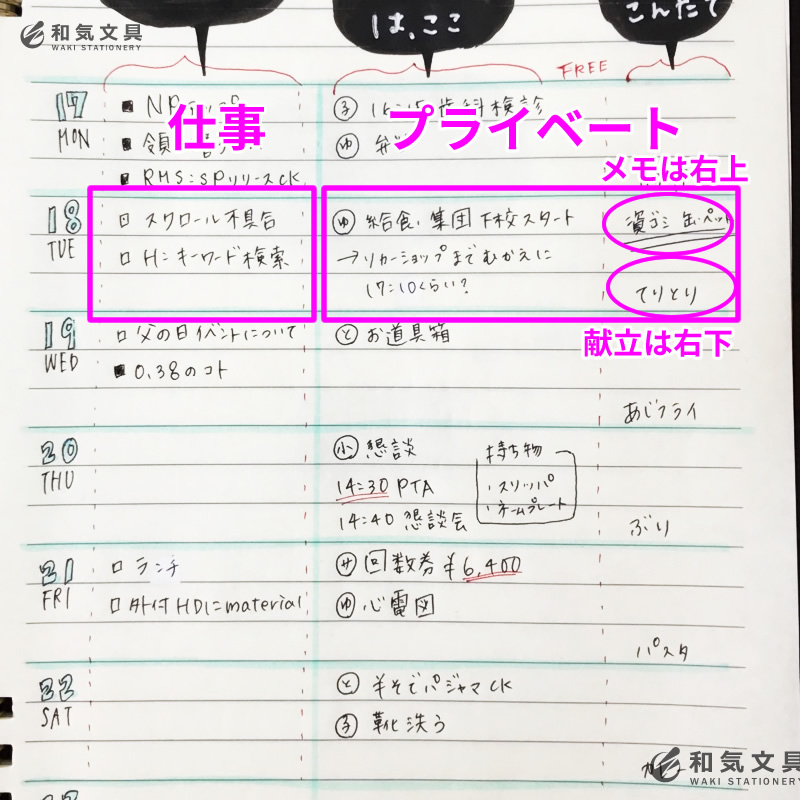 和気文具
WAKI STATIONERY
は、ここ
こんだて
FREE
17
MON
仕事
プライベート
領
RMS:SPリリースCK
16:15歯科検診
メモは右上
18
TUE
スクロール不具合
H:キーワード検索
ゆ 給食、集団下校スタート
→リカーショップまでむかえに
17:10くらい?
資ゴミ 缶・ペット
てりとり
献立は右下
19
WED
父の日イベントについて
0.38のコト
と お道具箱
あじフライ
20
THU
小 懇談
14:30 PTA
14:40 懇談会
持ち物
・スリッパ
・ネームプレート
ぶり
21
FRI
ランチ
外付HDにmaterial
サ 回数券 ¥6,400
ゆ 心電図
パスタ
22
SAT
と 半そでパジャマCK
子 靴洗う
和気文具
WAKI STATIONERY